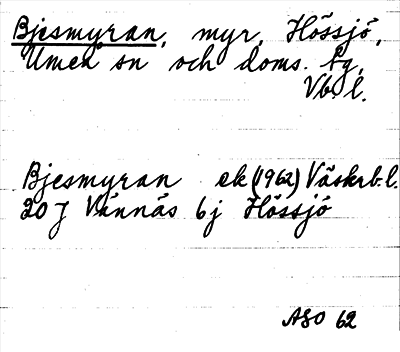 Bjesmyran, myr, Hössjö,
Umeå sn och doms. tg,
Vb. l.
Bjesmyran ek (1962) Västerb. l.
20 J Vännäs 6j Hössjö
ASO 62